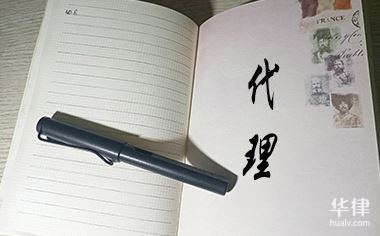 代
理
FRANCE
华律
hualv.com